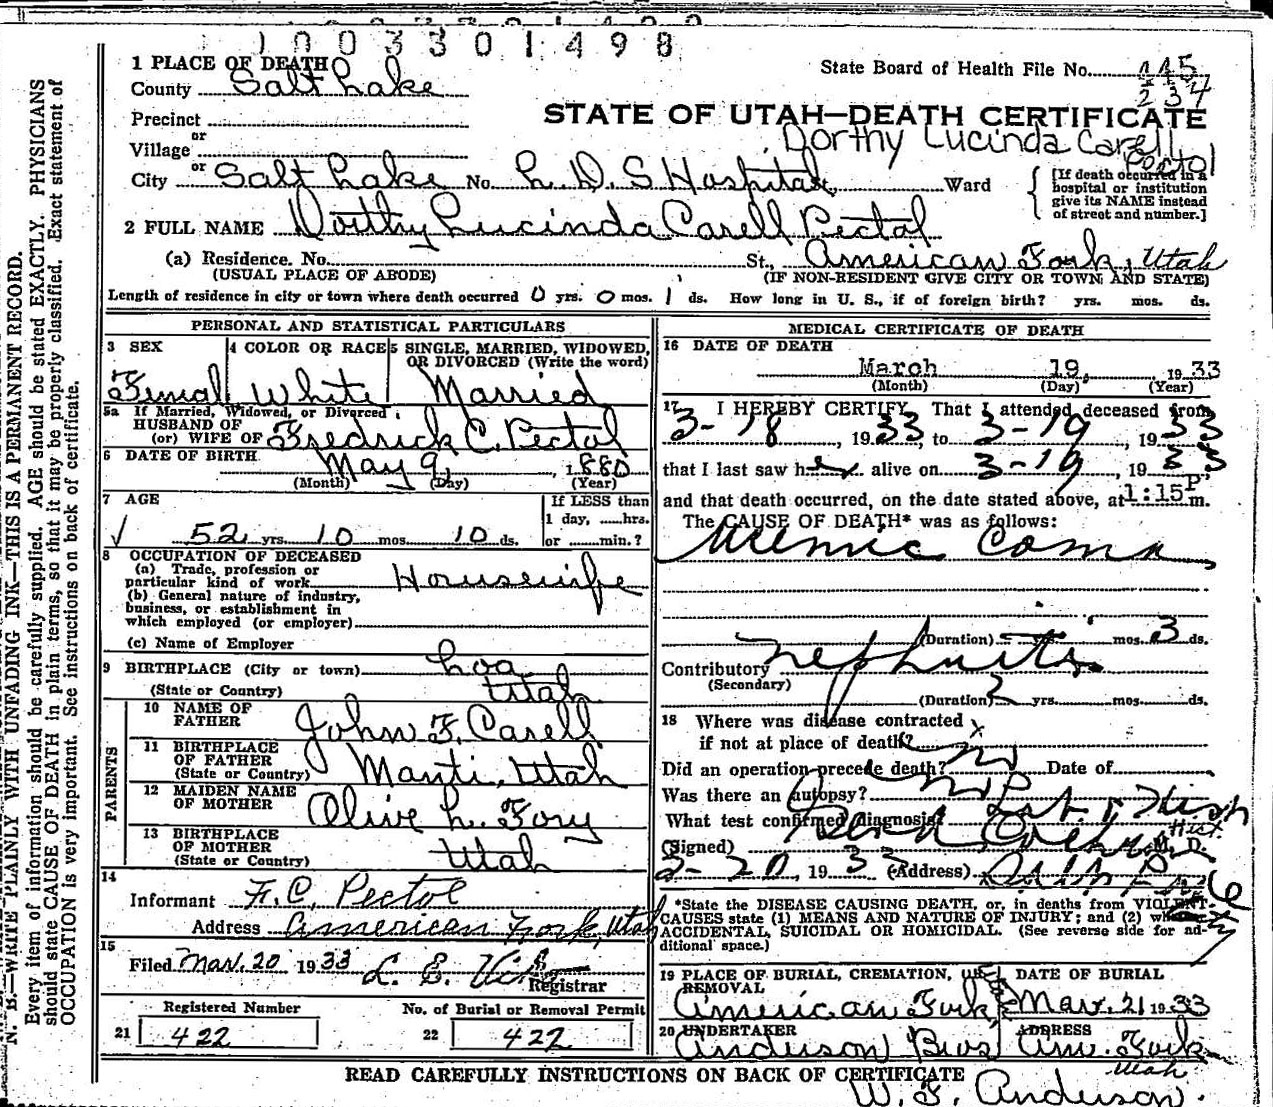 1003301498
1 PLACE OF DEATH
County Salt Lake
State Board of Health File No. 115
234
Precinct
or
Village
STATE OF UTAH—DEATH CERTIFICATE
Dorthy Lucinda Carell
Pectol
or
City Salt Lake No. L. D. S Hospital, Ward
[If death occurred in a
hospital or institution
give its NAME instead
of street and number.]
2 FULL NAME Dorthy Lucinda Carell Pectol
(a) Residence. No. St., American Fork, Utah
(USUAL PLACE OF ABODE) (IF NON-RESIDENT GIVE CITY OR TOWN AND STATE)
Length of residence in city or town where death occurred 0 yrs. 0 mos. 1 ds. How long in U. S., if of foreign birth? yrs. mos. ds.
PERSONAL AND STATISTICAL PARTICULARS
3 SEX 4 COLOR OR RACE 5 SINGLE, MARRIED, WIDOWED,
OR DIVORCED (Write the word)
Femal White Married
5a If Married, Widowed, or Divorced
HUSBAND OF
(or) WIFE OF Fredrick C. Pectol
6 DATE OF BIRTH
May 9, 1880
(Month) (Day) (Year)
7 AGE If LESS than
1 day, ......hrs.
52 yrs. 10 mos. 10 ds. or ......min.?
8 OCCUPATION OF DECEASED
(a) Trade, profession or
particular kind of work Housewife
(b) General nature of industry,
business, or establishment in
which employed (or employer)
(c) Name of Employer
9 BIRTHPLACE (City or town) Loa
(State or Country) Utah
PARENTS
10 NAME OF
FATHER John F. Carell
11 BIRTHPLACE
OF FATHER
(State or Country) Manti, Utah
12 MAIDEN NAME
OF MOTHER Olive L. Fory
13 BIRTHPLACE
OF MOTHER
(State or Country) Utah
14
Informant F. C. Pectol
Address American Fork, Utah
15
Filed Mar. 20 1933 L. E.
Registrar
Registered Number No. of Burial or Removal Permit
21 422 22 422
MEDICAL CERTIFICATE OF DEATH
16 DATE OF DEATH
March 19, 1933
(Month) (Day) (Year)
17 I HEREBY CERTIFY, That I attended deceased from
3-18, 1933, to 3-19, 1933
that I last saw her alive on 3-19, 1933
and that death occurred, on the date stated above, at 1:15 P. m.
The CAUSE OF DEATH* was as follows:
Uremic Coma
(Duration) yrs. mos. 3 ds.
Contributory Nephritis
(Secondary)
(Duration) 2 yrs. mos. ds.
18 Where was disease contracted
if not at place of death? x
Did an operation precede death? no Date of
Was there an autopsy? no
What test confirmed diagnosis? Lab &
(Signed) M. D.
3-20, 1933 (Address)
*State the DISEASE CAUSING DEATH, or, in deaths from VIOLENT
CAUSES state (1) MEANS AND NATURE OF INJURY; and (2) whether
ACCIDENTAL, SUICIDAL OR HOMICIDAL. (See reverse side for ad-
ditional space.)
19 PLACE OF BURIAL, CREMATION, DATE OF BURIAL
REMOVAL
American Fork, Mar. 21 1933
20 UNDERTAKER ADDRESS
Anderson Bros Am. Fork
Utah
READ CAREFULLY INSTRUCTIONS ON BACK OF CERTIFICATE
W. F. Anderson.
N. B.—WRITE PLAINLY WITH UNFADING INK—THIS IS A PERMANENT RECORD.
Every item of information should be carefully supplied. AGE should be stated EXACTLY. PHYSICIANS
should state CAUSE OF DEATH in plain terms, so that it may be properly classified. Exact statement of
OCCUPATION is very important. See instructions on back of certificate.